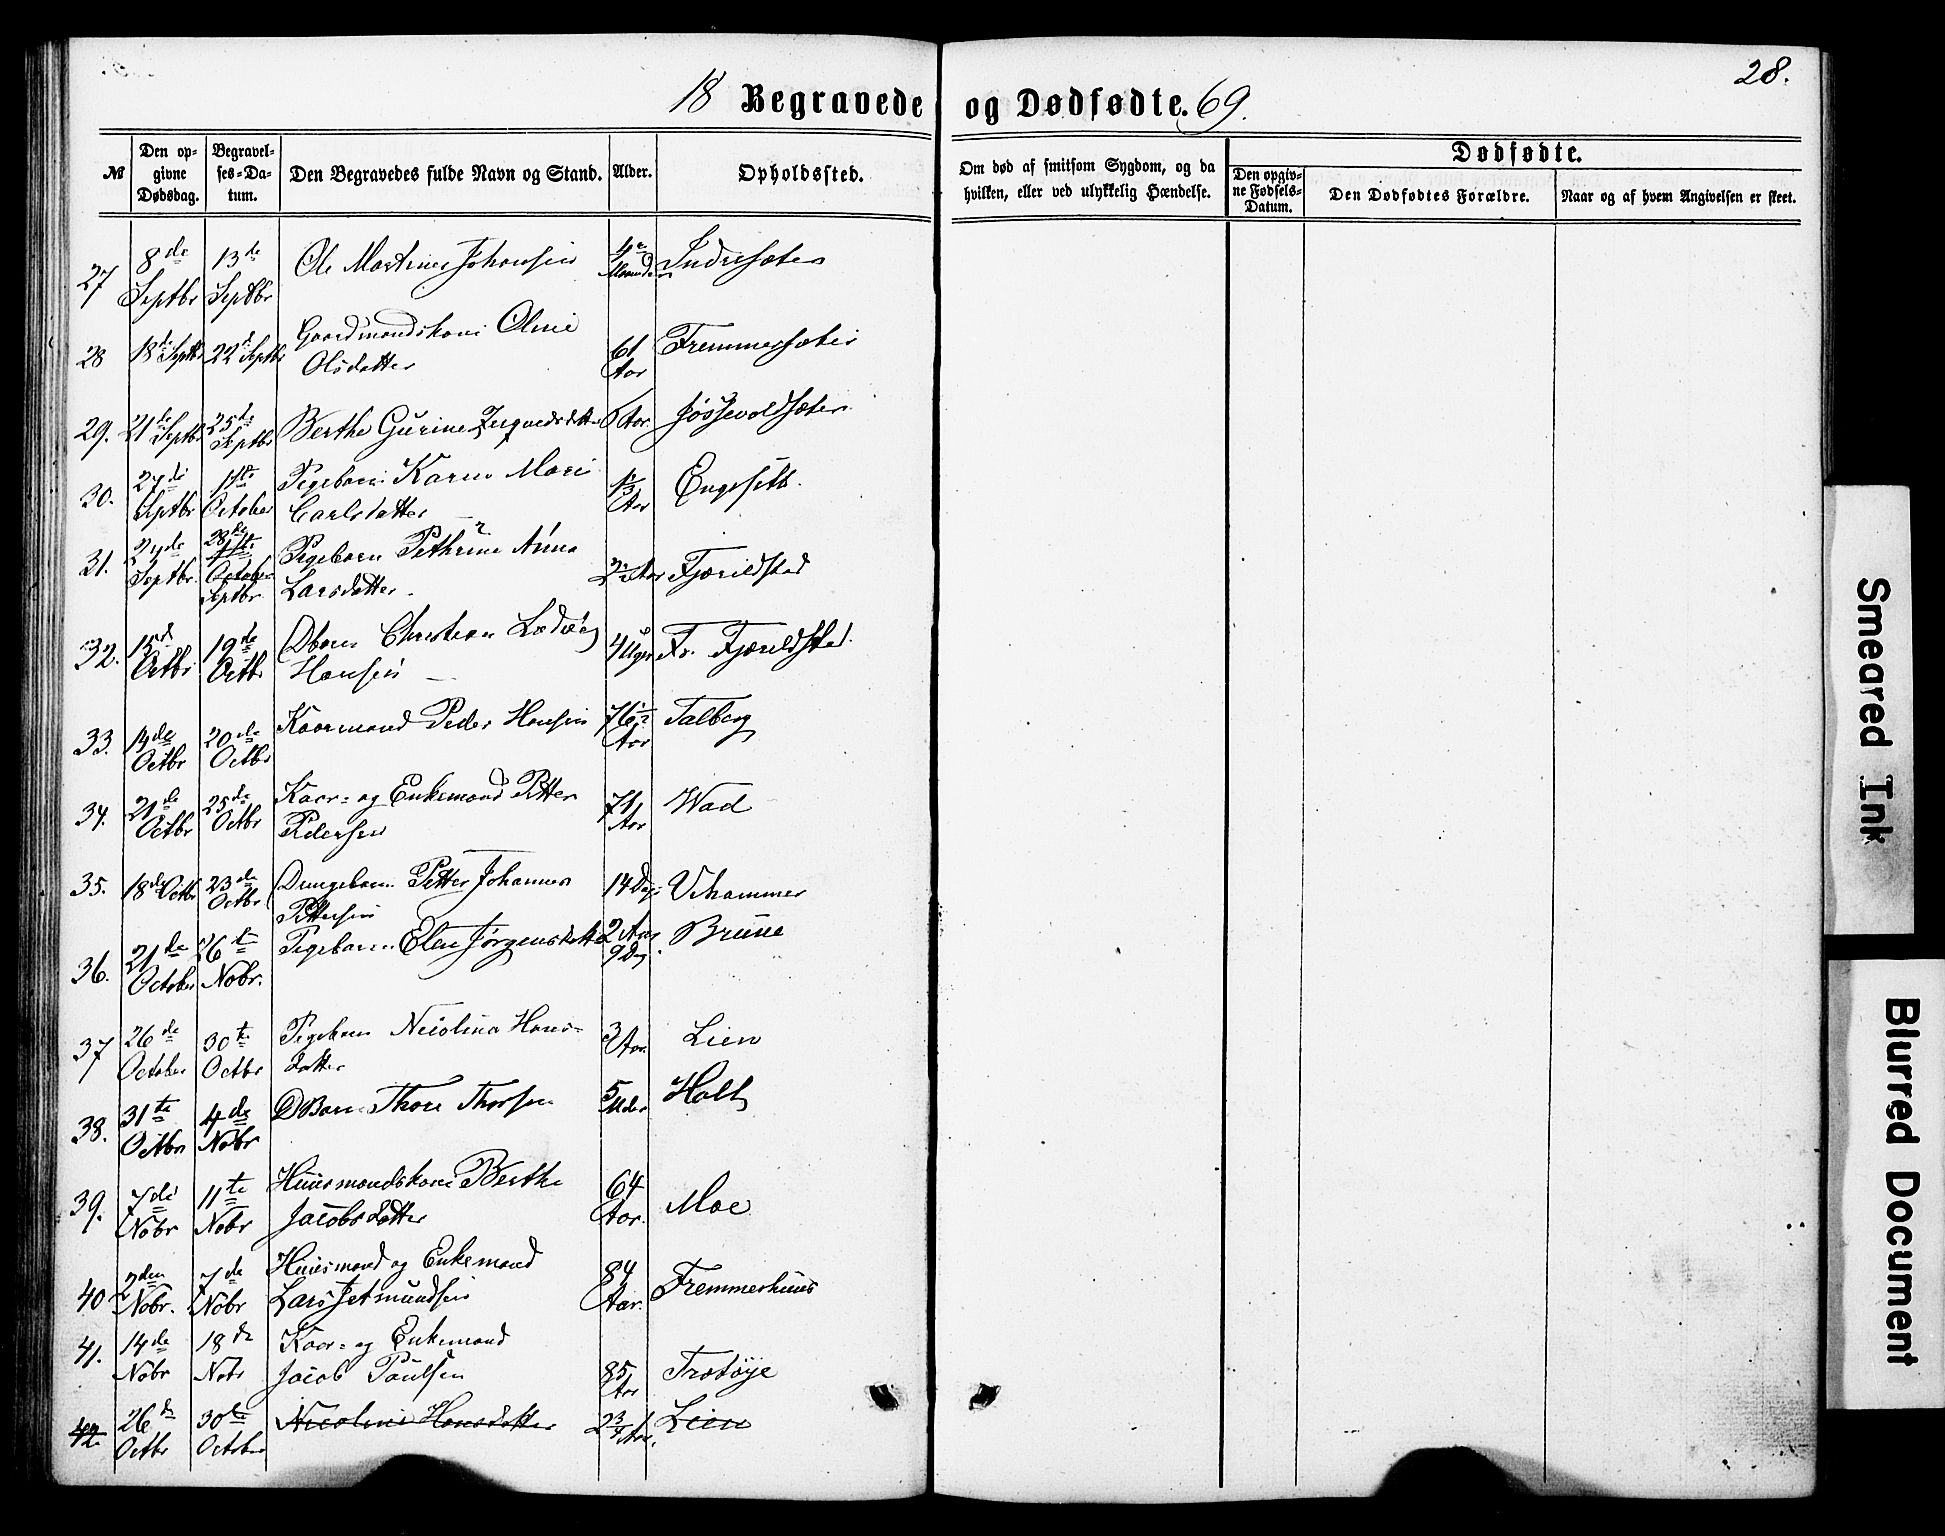 28.
18 Begravede og Dødfødte. 69.
№
Den opgivne Dødsdag.
Begravelses-Datum.
Den Begravedes fulde Navn og Stand.
Alder.
Opholdssted.
Om død af smitsom Sygdom, og da hvilken, eller ved ulykkelig Hændelse.
Dødfødte.
Den opgivne Fødsels-Datum.
Den Dødfødtes Forældre.
Naar og af hvem Angivelsen er skeet.
27 8de Septbr 13de Septbr Ole Martinus Johansen 4 Maaneder Indresæter
28 18de Septbr 22de Septbr Gaardmandskone Oline Olsdatter 61 Aar Fremmersæter
29. 21de Septbr 25de Septbr Berthe Gurine 6 Aar Jøssevoldsæter
30. 27de Septbr 1ste October Pigebarn Karen Marie Carlsdatter Aar Engesett
31. Septbr. 28de October Septbr. Pigebarn Pethrine Anna Larsdatter Aar Fjærildstad
32. 15d Octbr 19de Octbr Dbarn Christian Ludvig Hansen 4 Uger Fr. Fjærildstad
33. 14de Octbr 20de Octbr Kaarmand Peder Hansen 76½ Aar Talberg
34. 21de Octbr 25de Octbr Kaar- og Enkemand Petter Pedersen 71 Aar Wad
35. 18de Octbr 23de Octbr Drengebarn Petter Johannes Pettersen 14 Dage Vihammer
36. 21de October 26te Nobr. Pigebarn Elen Jørgensdatter 2 Aar 9 Dag Brune
37 26de October 30te Octbr Pigebarn Nicolina Hansdatter 3 Aar Lien
38. 31te Octbr 4de Nobr DBarn Thore Thorsen 5 Holt
39. 7de Nobr 11te Nobr Huusmandskone Berthe Jacobsdatter 64 Aar. Moe
40 2den Nobr. 7de Nobr Huusmand og Enkemand Lars Jetmundsen 84 Aar. Fremmerhuus
41. 14de Nobr 18de Nobr Kaar- og Enkemand Jacob Paulsen 85 Aar Trotøye
42 26de Octbr 30te October Nicoline Hansdatter 2¾ Aar. Lien
Smeared Ink
Blurred Document